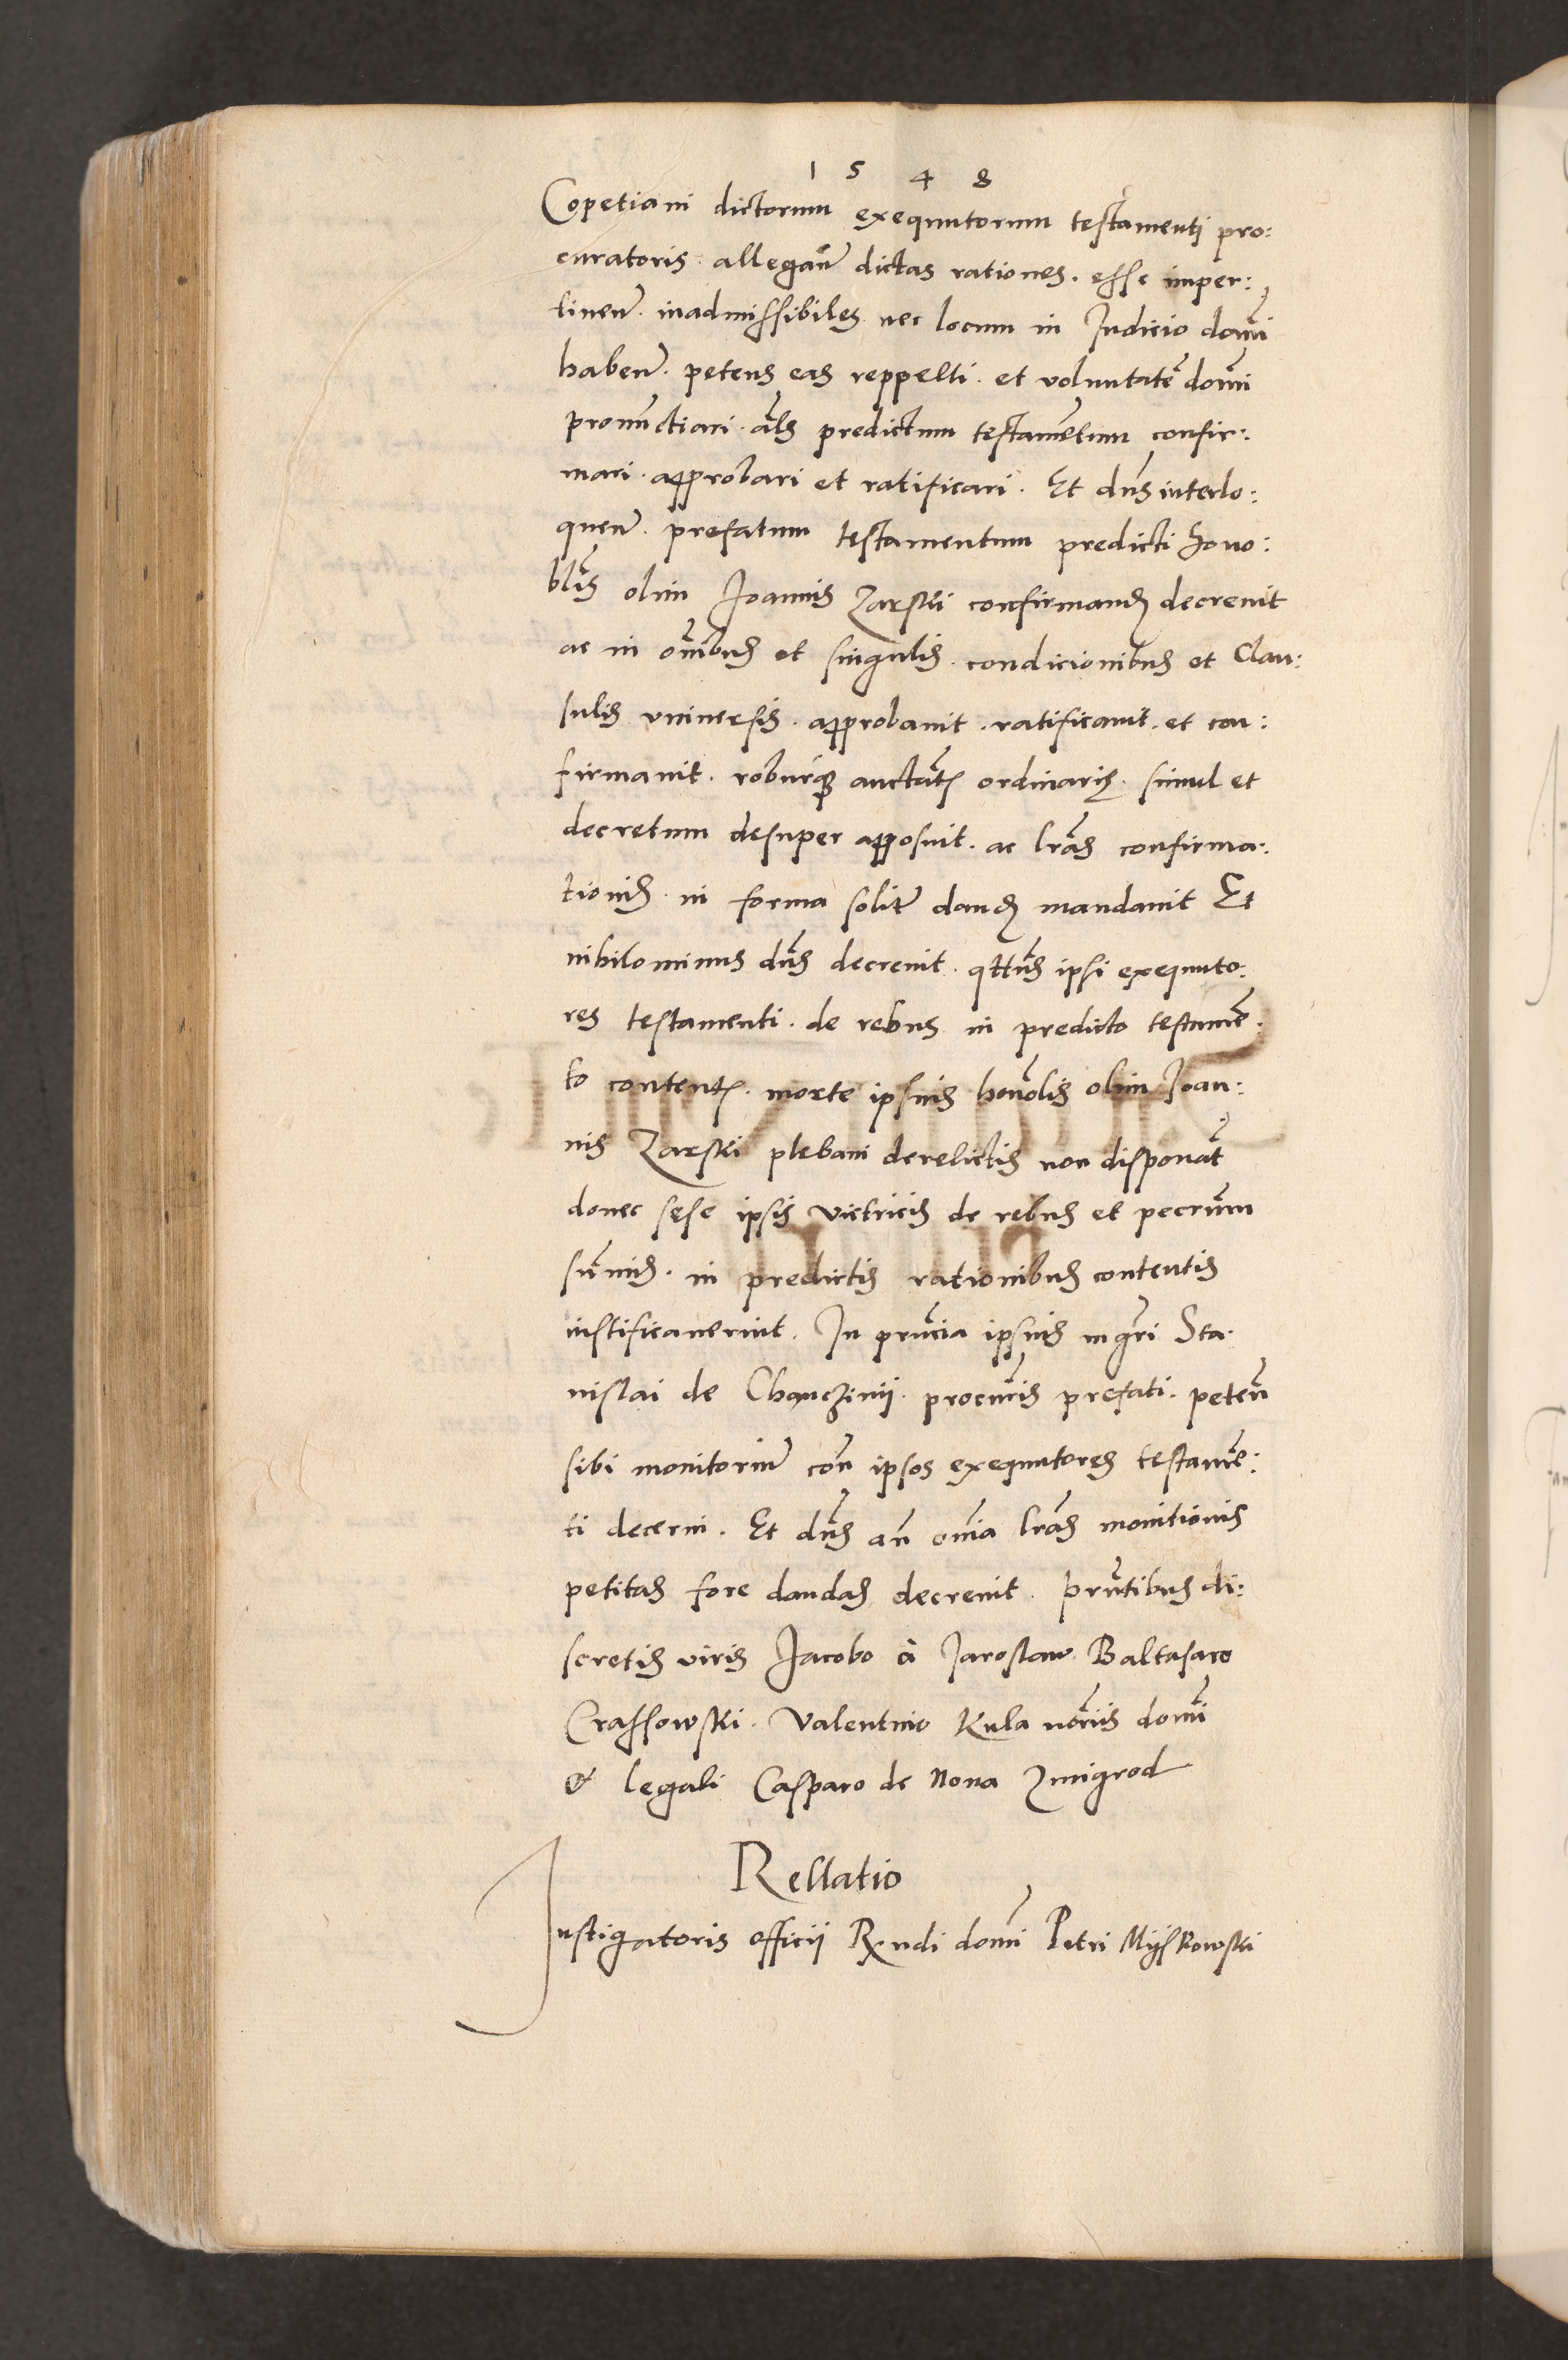 1548
Copetiani dictorum exequutorum testamenti pro:
curatoris allegan̄ dictas rationes. esse imper:
tinen̄. inadmissibiles nec locum in Judicio domi
haben̄. petens eas reppelli. et voluntatē domi
pronunctiari. als predictum testamētum confir:
mari. approbari et ratificari. Et dn̄s interlo:
quen̄. prefatum testamentum predicti hono:
blis olim Joannis Zarski confirmand decrevit
ac in om̄ibus et singulis. condicionibus et Clau:
sulis universis. approbavit. ratificavit. et con:
firmavit. roburq auctātis ordinariȩ. simul et
decretum desuper apposuit. ac lrās confirma.
tionis. in forma solit̄ dand mandavit Et
nihilominus dn̄s decrevit. qttūs ipsi exequuto.
res testamenti. de rebus in predicto testamē.
to content. morte ipsius honōlis olim Joan:
nis Zarski plebani derelictis non disponāt
donec sese ipsis victricis de rebus et pecrum̄
sūmis. in predictis rationibus contentis
iustificaverint. In prn̄cia ipsius mgri Sta.
nislai de Chanczinij. procuris prefati. peten̄
sibi monitoriū con̄ ipsos exequutores testamē:
ti decerni. Et dn̄s an̄ om̄ia lrās monitionis
petitas fore dandas decrevit. prn̄tibus di:
scretis viris Jacobo à Jaroslaw. Baltasaro
Crassowski. Valentino Kula nōriis domi
& legali Casparo de Nova Zmigrod
Rellatio
Instigatoris officii Rndi domi Petri Mijskowski